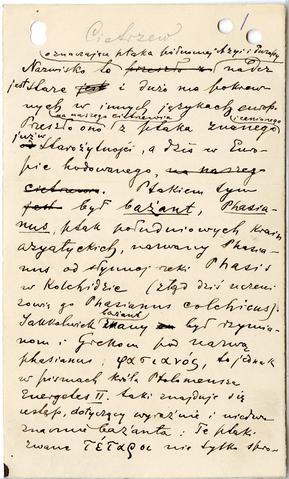 1
Cietrzew
oznaczająca ptaka północnej Azyi i Europy
Nazwisko to przeszło z nadzwyczaj
jest stare jest i dużo ma pokrewnych
w innych językach europ.
na naszego cietrzewia i cenionego
Przeszło ono z ptaka znanego
już w
od Starożytności, a dziś w Europie
hodowanego, na naszego
cietrzewia. Ptakiem tym
jest był bażant, Phasianus,
ptak południowych krain
azyatyckich, nazwany Phasianus
od słynnej rzeki Phasis
w Kolchidzie (ztąd dziś uczeni
zową go Phasianus colchicus).
bażant
Jakkolwiek znany był rzymianom
i Grekom pod nazwą
phasianus, φασιανός, to jednak
w pismach króla Ptolomeusza
Energetes II. taki znajduje się
ustęp, dotyczący wyraźnie i niedwuznacznie
bażanta: Te ptaki
zwane τέταροι nie tylko spro-